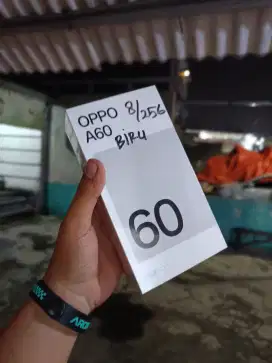 OPPO 8/256
A60 BIRU
60